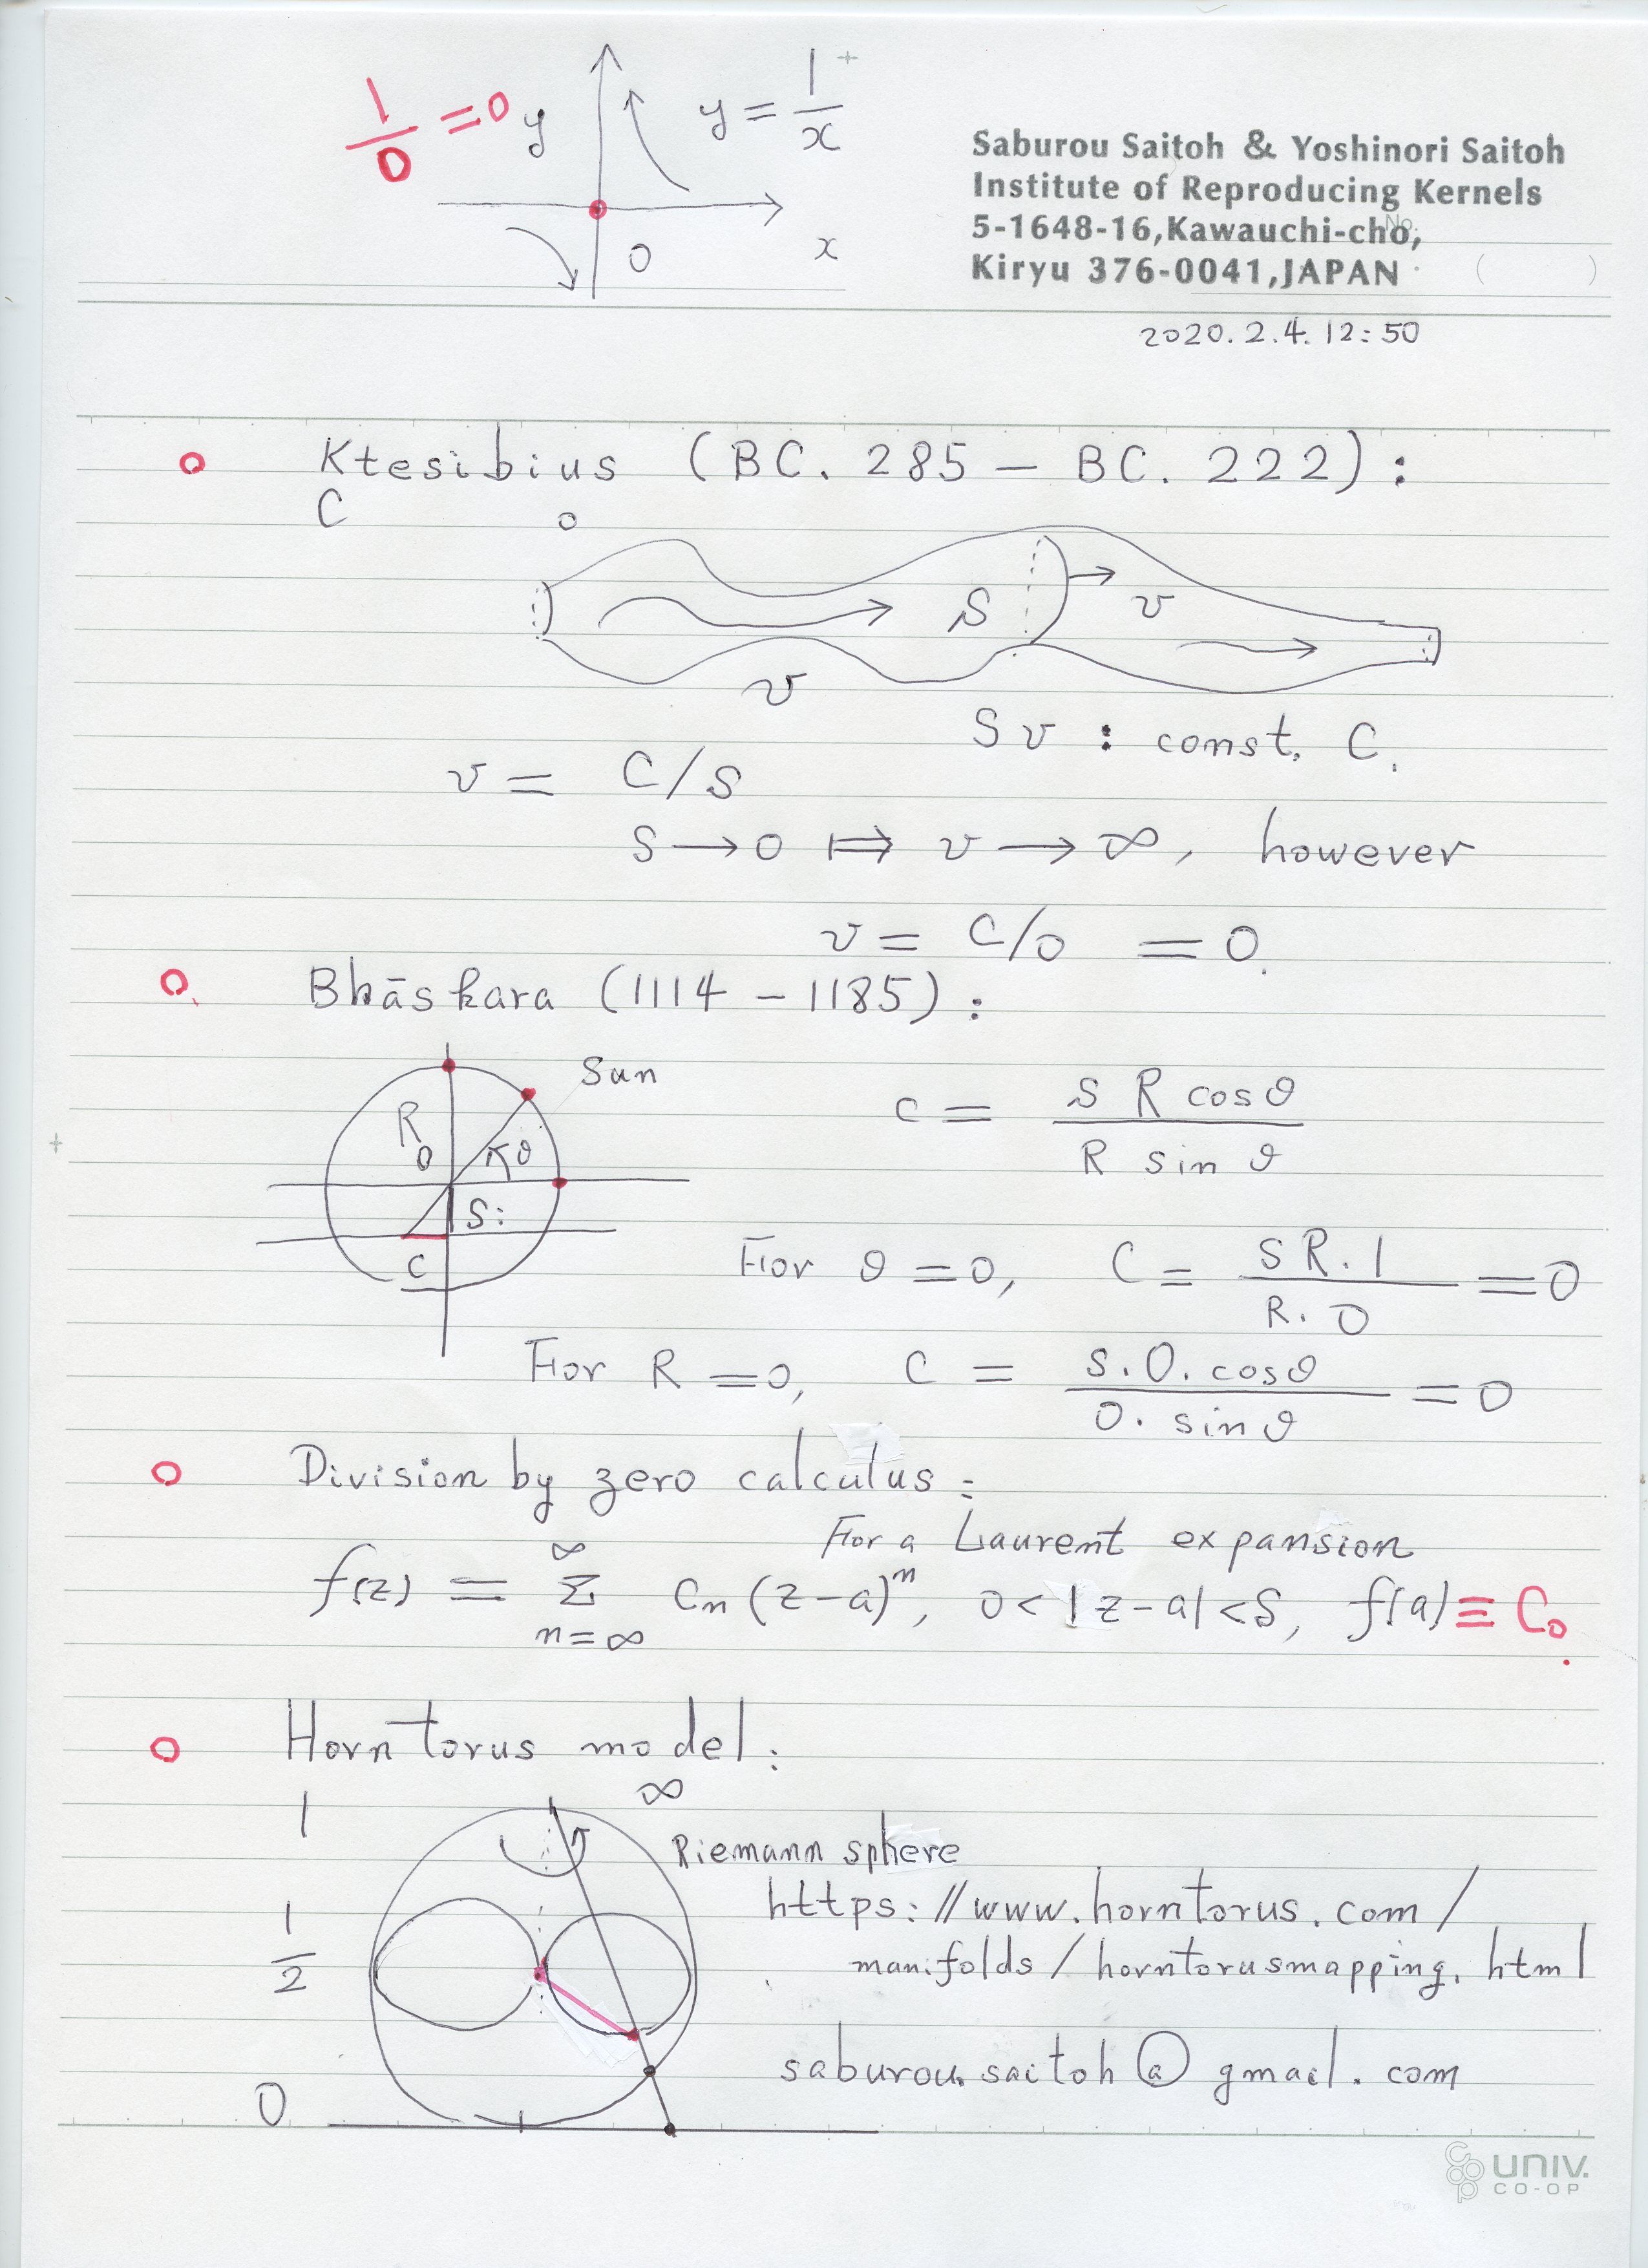 1/0 = 0
y
y = 1/x
0
x
Saburou Saitoh & Yoshinori Saitoh
Institute of Reproducing Kernels
5-1648-16,Kawauchi-cho,
Kiryu 376-0041,JAPAN
No.
( )
2020.2.4. 12:50
Ktesibius (BC. 285 – BC. 222):
C o
S
v
v
Sv : const. C.
v = C/S
S → 0 ⟹ v → ∞, however
v = C/0 = 0.
Bhāskara (1114 – 1185):
Sun
R
0
θ
S:
C
c = s R cosθ / R sin θ
For θ = 0, C = SR.1 / R.0 = 0
For R = 0, C = S.0.cosθ / 0.sinθ = 0
Division by zero calculus:
For a Laurent expansion
f(z) = ∞ Σ n=∞ Cn (z-a)^n, 0 < |z-a| < S, f(a) ≡ C0.
Horn torus model:
∞
1
Riemann sphere
https://www.horntorus.com/
1/2
manifolds/horntorusmapping.html
saburou.saitoh@gmail.com
0
UNIV.
CO-OP